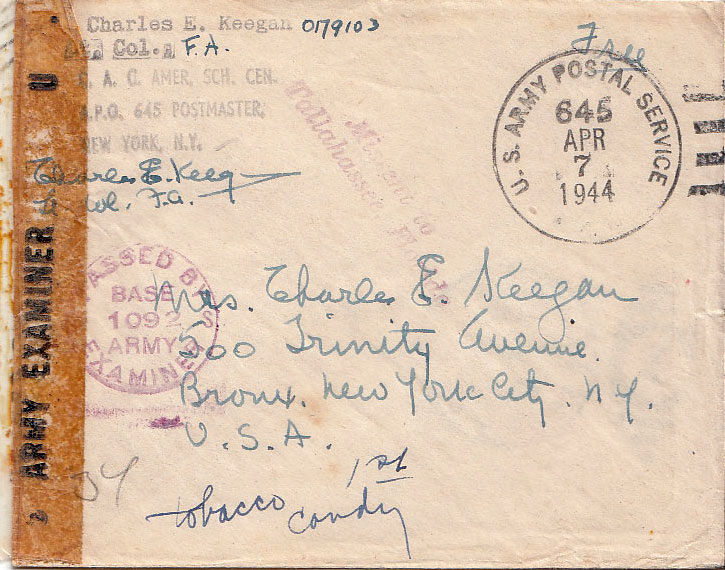 Charles E. Keegan 0179103
Lt. Col., F.A.
A. C. AMER. SCH. CEN.
A.P.O. 645 POSTMASTER,
NEW YORK, N.Y.
Charles E. Keeg
Col. F.A.
Free
U.S. ARMY POSTAL SERVICE
645
APR
7
1944
Missent to
Tallahassee, Fla.
U
ARMY EXAMINER
PASSED BY U.S
BASE
1092
ARMY
EXAMINER
Mrs. Charles E. Keegan
500 Trinity Avenue.
Bronx. New York City. N.Y.
U.S.A.
34
1st
tobacco candy